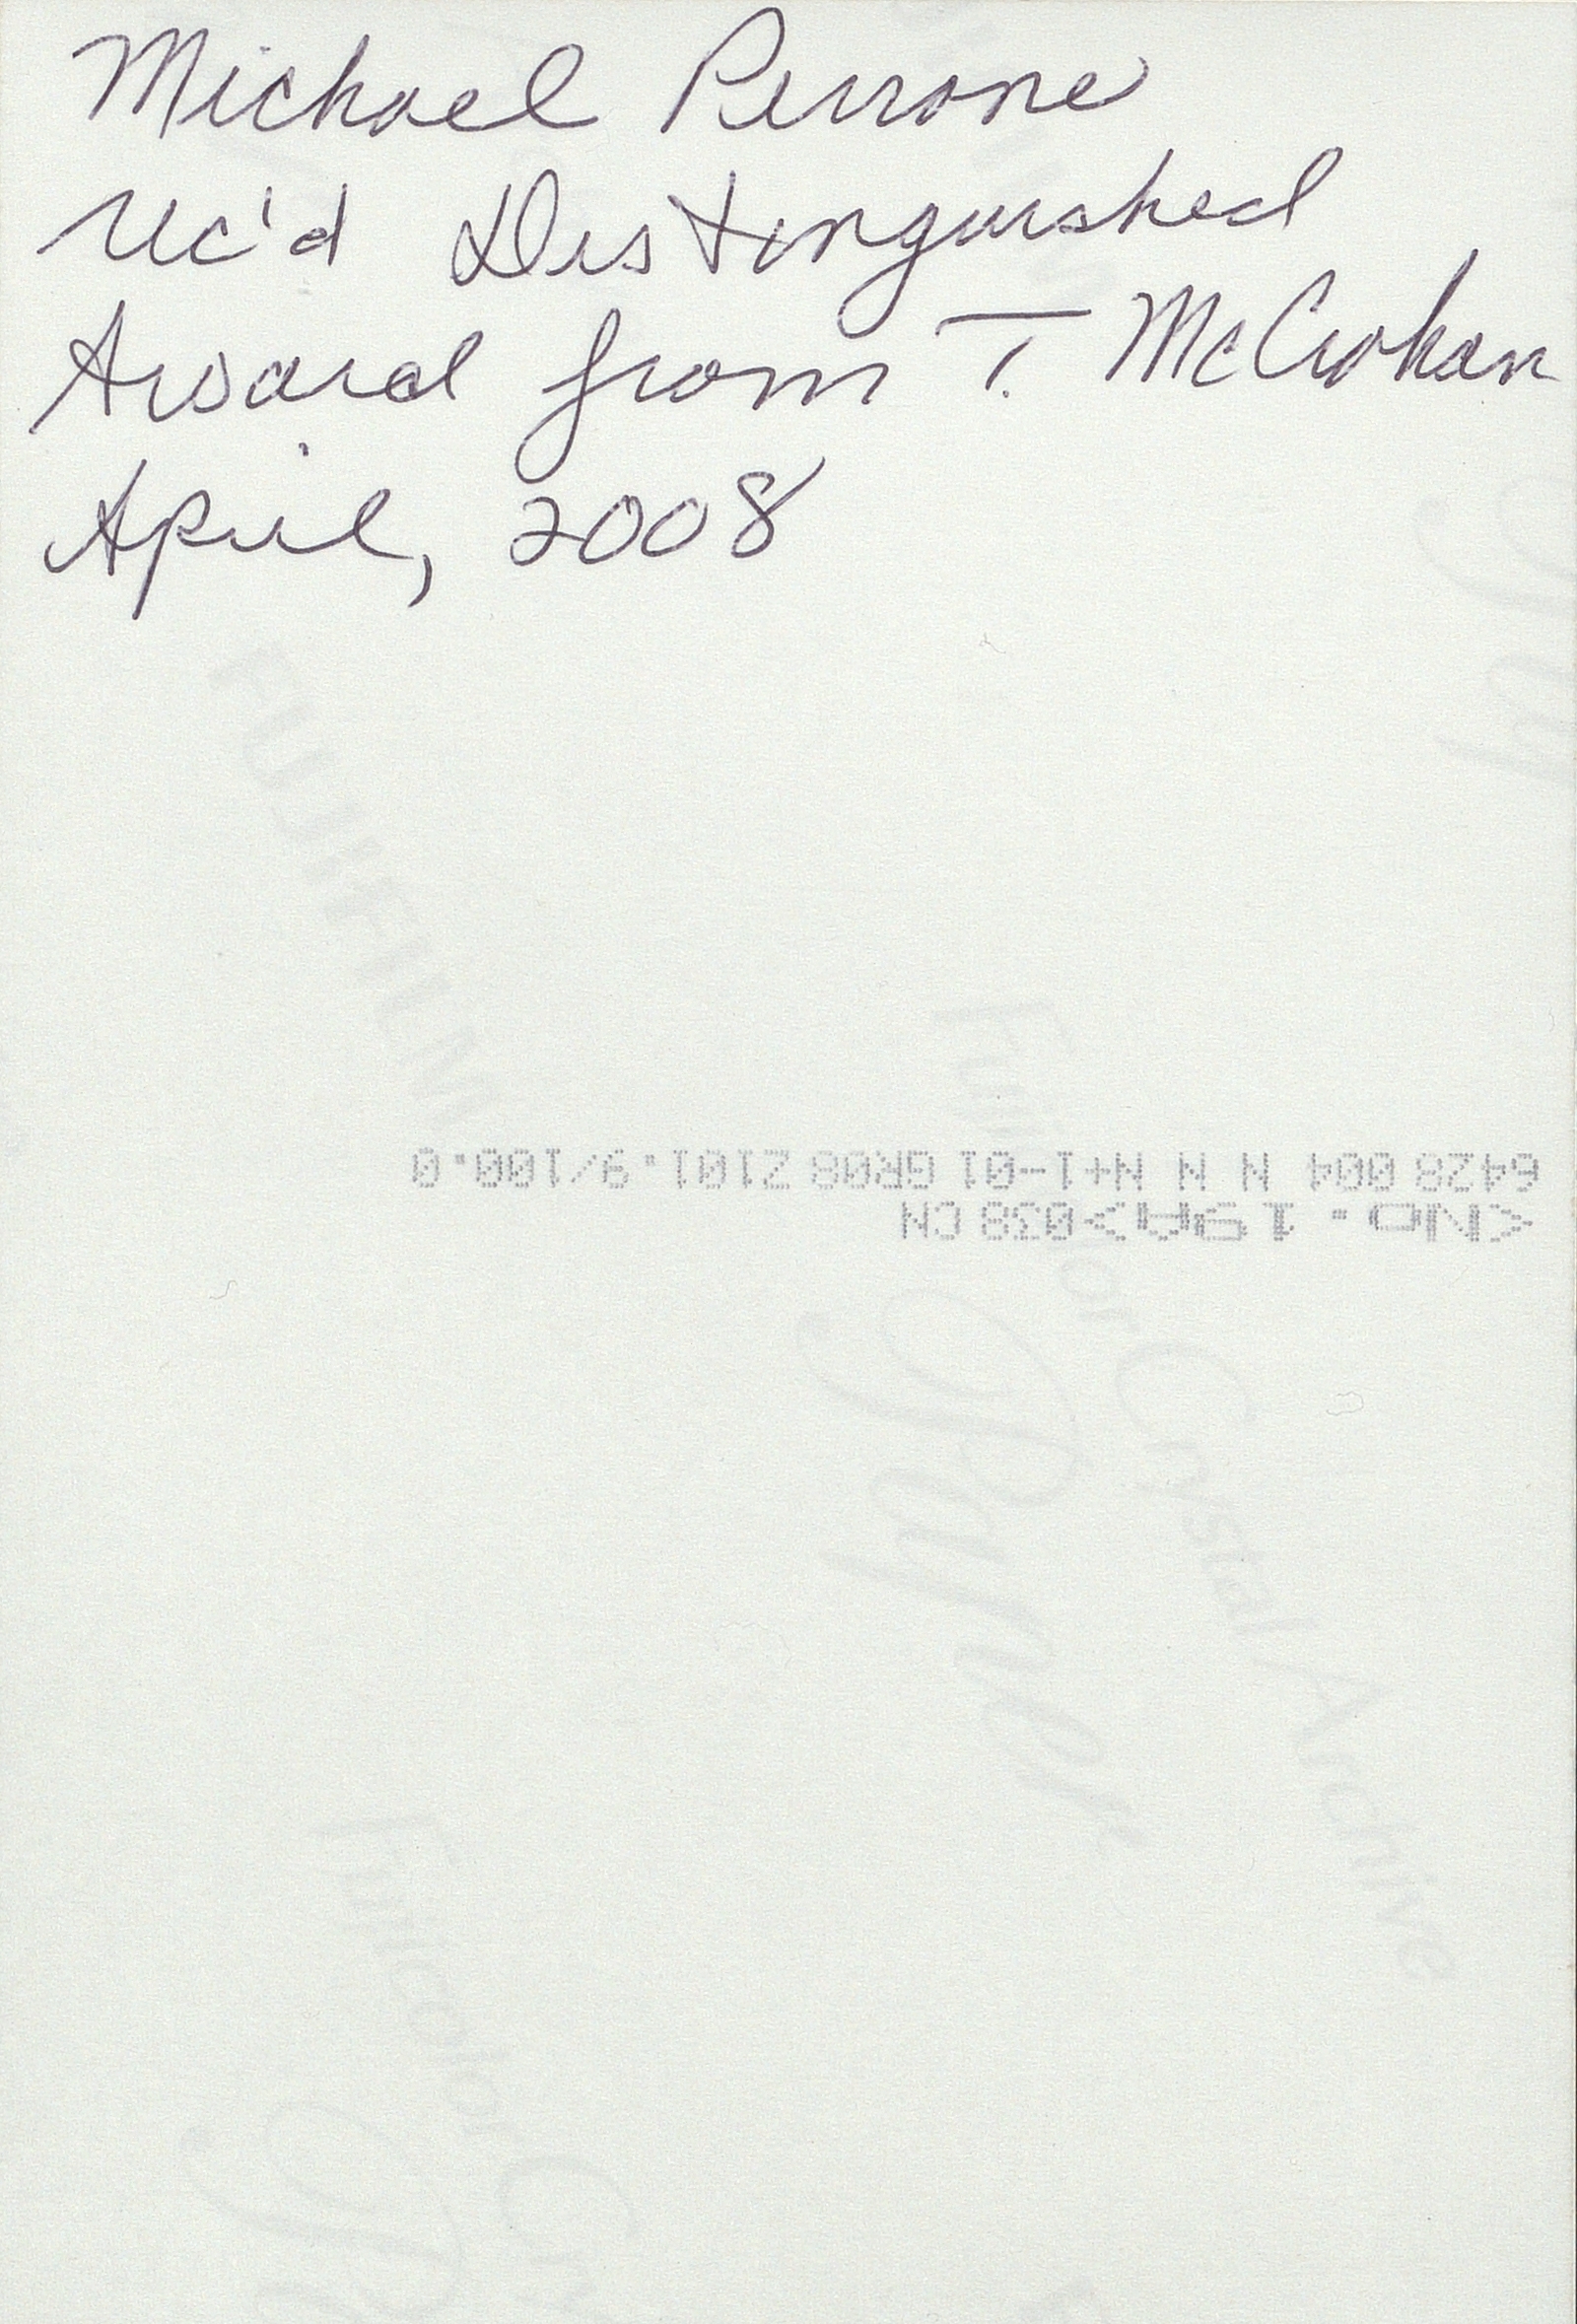 Michael Perrone
rec'd Distinguished
Award from T. McCrohan
April, 2008
FUJIFILM
Fujicolor Crystal Archive
Paper
<NO. 19A>028 CN
6428 004 N N N+1-01 GR08 Z101.9/100.0
Fujicolor Cr